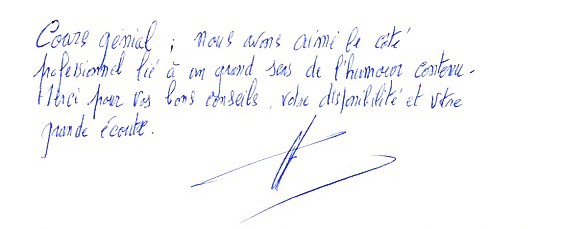 Cours génial ; nous avons aimé le côté
professionnel lié à un grand sens de l'humour contenu.
Merci pour vos bons conseils, votre disponibilité et votre
grande écoute.